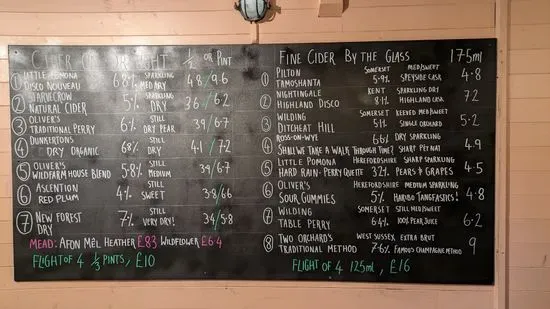 CIDER ON DRAUGHT ½ OR PINT
① LITTLE POMONA DISCO NOUVEAU 6.8% SPARKLING MED ARY 4.8/9.6
② JARVECROW NATURAL CIDER 5% SPARKLING DRY 3.6/6.2
③ OLIVER'S TRADITIONAL PERRY 6% STILL DRY PEAR 3.9/6.7
④ DUNKERTONS DRY ORGANIC 6.8% STILL DRY 4.1/7.2
⑤ OLIVER'S WILDFARM HOUSE BLEND 5.8% STILL MEDIUM 3.9/6.7
⑥ ASCENTION RED PLUM 4% STILL SWEET 3.8/6.6
⑦ NEW FOREST DRY 7% STILL VERY DRY! 3.4/5.8
MEAD: AFON MÊL HEATHER £8.3 WILDFLOWER £6.4
FLIGHT OF 4 ⅓ PINTS, £10
FINE CIDER BY THE GLASS MED/SWEET 175ml
① PILTON TAMOSHANTA SOMERSET 5.9% SPEYSIDE CASK 4.8
② NIGHTINGALE HIGHLAND DISCO KENT SPARKLING DRY 8.1% HIGHLAND CASK 7.2
③ WILDING DITCHEAT HILL SOMERSET KEEVED MED/SWEET 5.1% SINGLE ORCHARD 5.2
④ ROSS-ON-WYE SHALL WE TAKE A WALK THROUGH TIME? 6.6% DRY SPARKLING SHARP PET NAT 4.9
⑤ LITTLE POMONA HARD RAIN: PERRY QUETTE HEREFORDSHIRE SHARP SPARKLING 3.2% PEARS & GRAPES 4.5
⑥ OLIVER'S SOUR GUMMIES HEREFORDSHIRE MEDIUM SPARKLING 5% HARIBO TANGFASTICS! 4.8
⑦ WILDING TABLE PERRY SOMERSET STILL MED/SWEET 6.4% 100% PEAR JUICE 6.2
⑧ TWO ORCHARDS TRADITIONAL METHOD WEST SUSSEX EXTRA BRUT 7.6% FAMOUS CHAMPAGNE METHOD 9
FLIGHT OF 4 125ml, £16